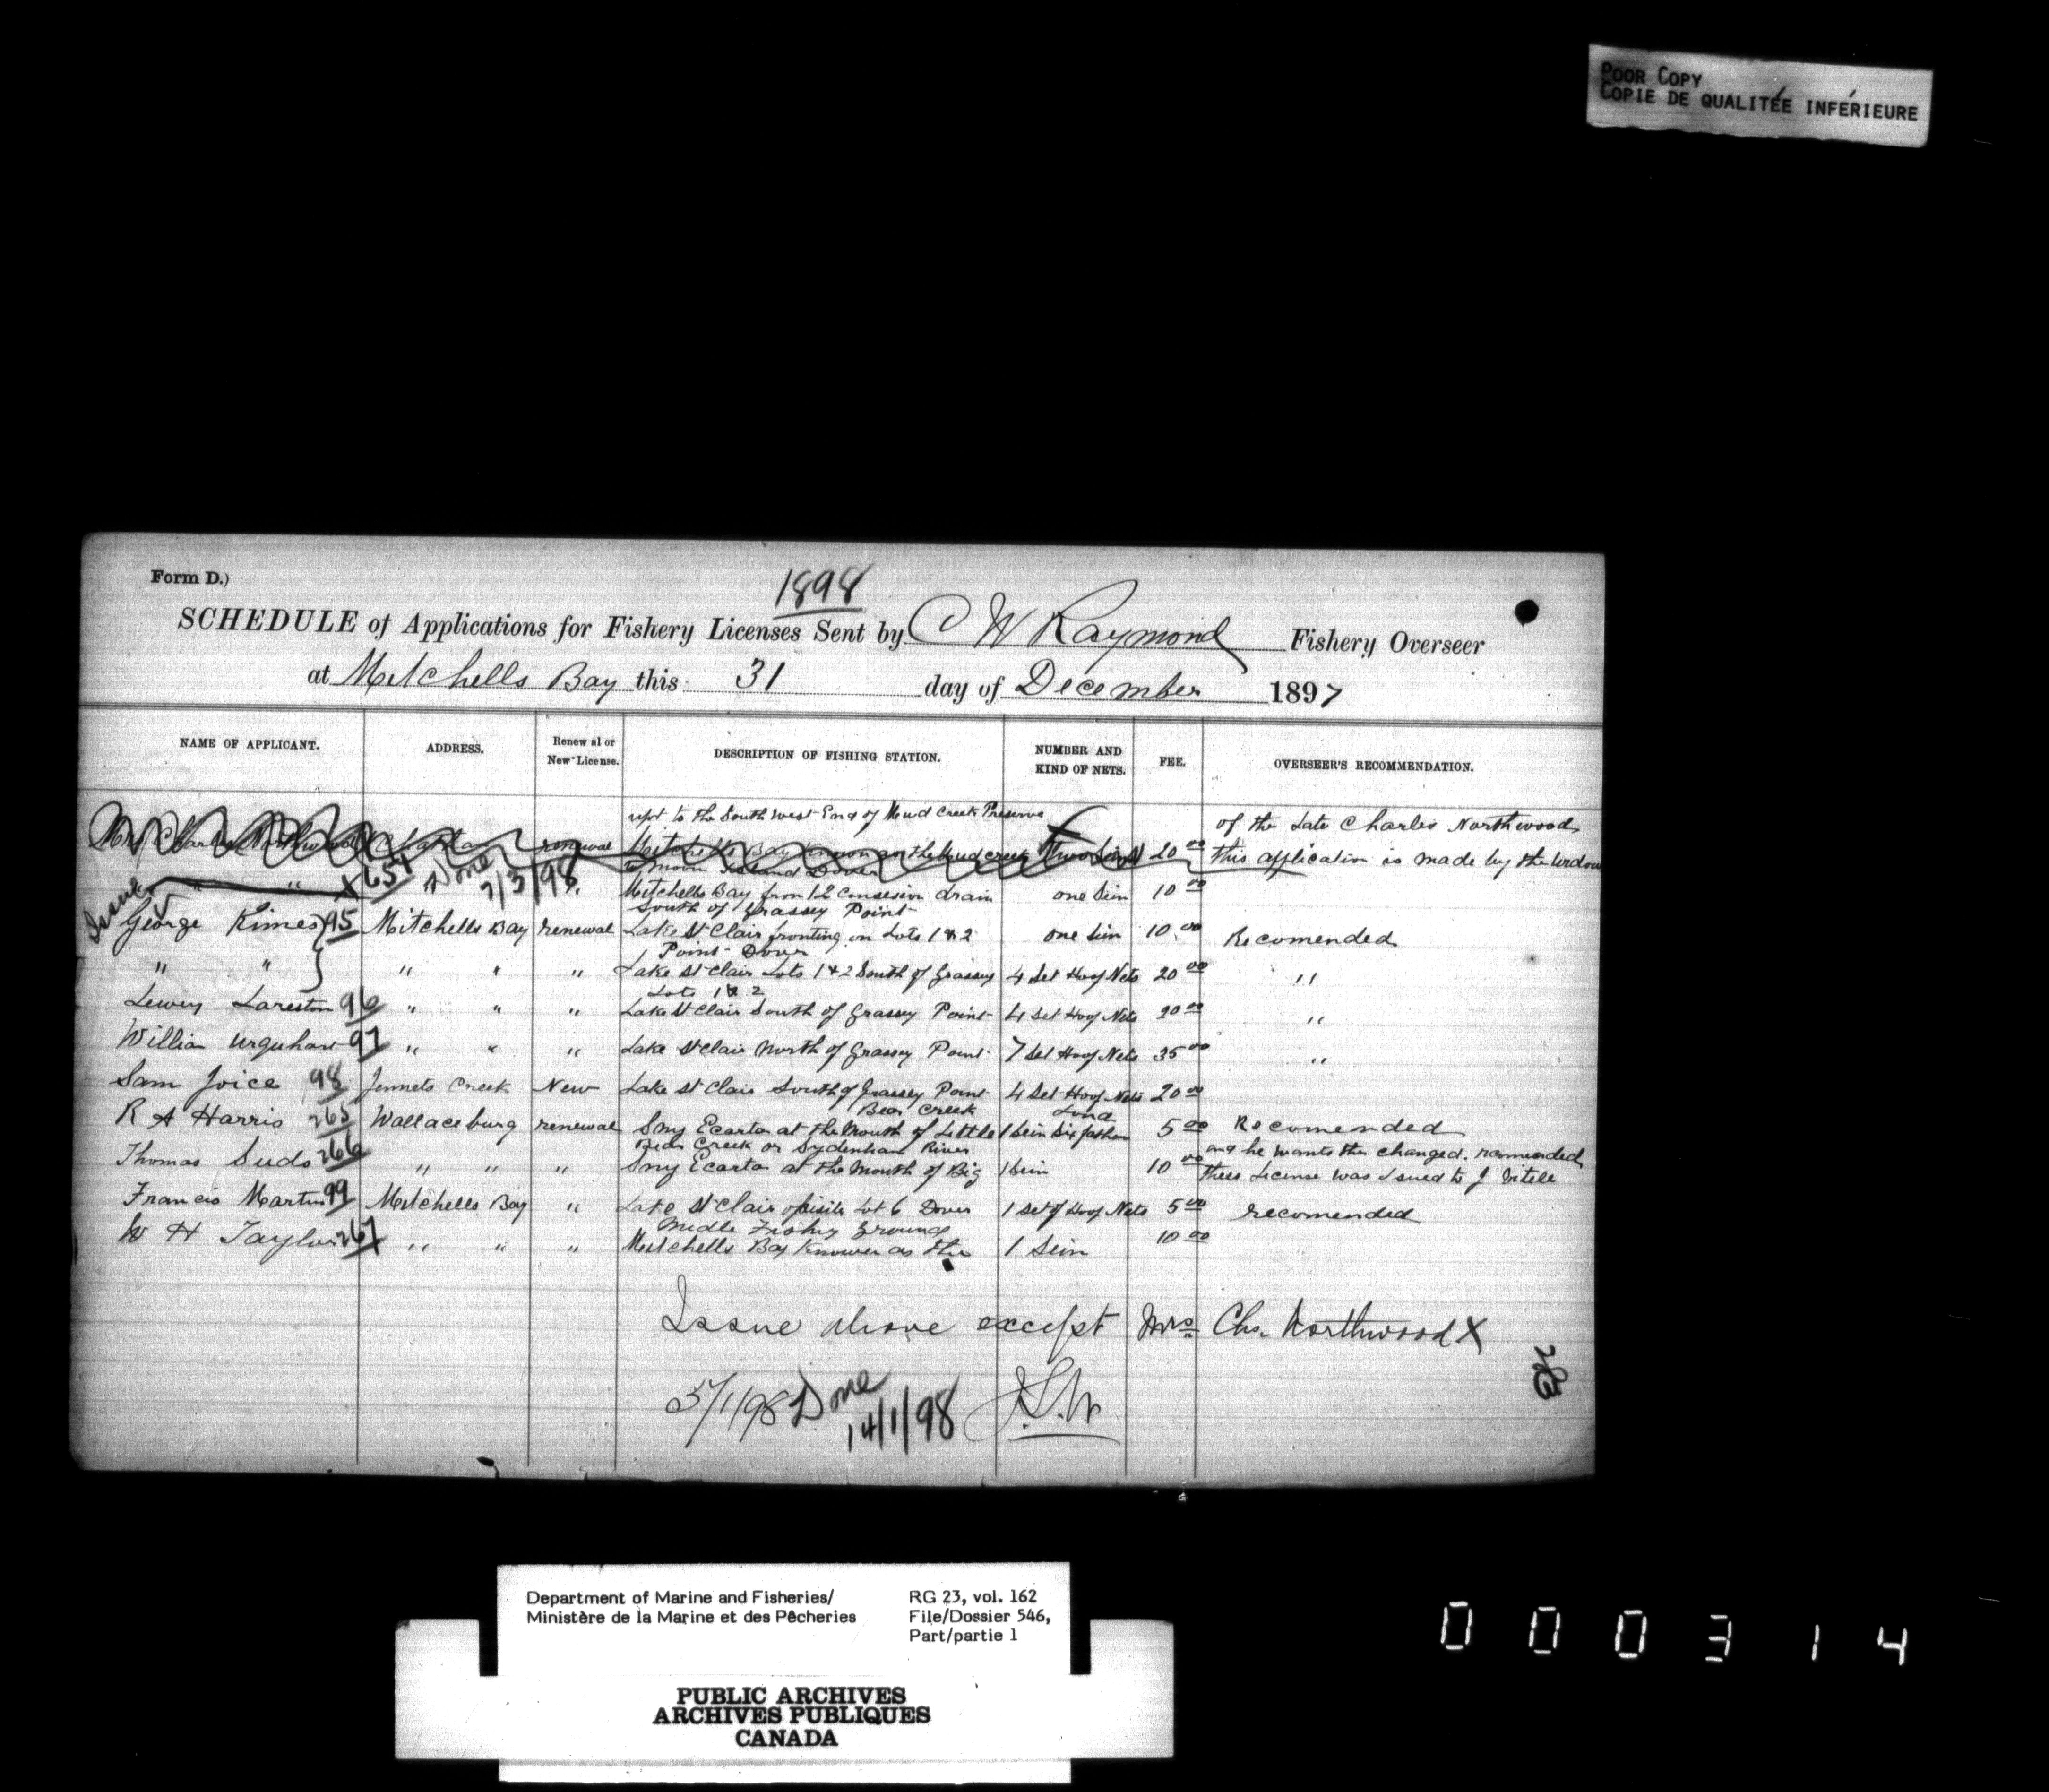 POOR COPY
COPIE DE QUALITÉE INFÉRIEURE
Form D.)
1898
SCHEDULE of Applications for Fishery Licenses Sent by C W Raymond Fishery Overseer
at Mitchells Bay this 31 day of December 1897
NAME OF APPLICANT. ADDRESS. Renewal or New License. DESCRIPTION OF FISHING STATION. NUMBER AND KIND OF NETS. FEE. OVERSEER'S RECOMMENDATION.
upt to the South West End of Mud Creek Preserve of the Late Charles Northwood
Mrs Charles Northwood renewal Mitchells Bay known as the Mud creek two Seins 20 00 this application is made by the widow
Island Dover
Issue " " X 651 Done 7/3/98 " Mitchells Bay from 12 Consesion drain one Sein 10 00
South of Grassey Point
George Kimes 95 Mitchells Bay renewal Lake St Clair fronting on Lots 1 & 2 one Sein 10 00 Recomended
Point Dover
" " " " " Lake St Clair Lots 1 & 2 South of Grassey 4 Set Hoof Nets 20 00 "
Lots 1 & 2
Lewey Lareston 96 " " " Lake St Clair South of Grassey Point 4 Set Hoof Nets 20 00 "
William Urquhart 97 " " " Lake St Clair North of Grassey Point 7 Set Hoof Nets 35 00 "
Sam Joice 98 Jennets Creek New Lake St Clair South of Grassey Point 4 Set Hoof Nets 20 00
Bear Creek
R A Harris 265 Wallaceburg renewal Sny Ecarta at the Mouth of Little 1 Sein Six fathom 5 00 Recomended
Bear Creek or Sydenham River and he wants the changed. recomended
Thomas Suds 266 " " " Sny Ecarta at the Mouth of Big 1 Sein 10 00 Thees License was Isued to J
Francis Martin 99 Mitchells Bay " Late St Clair opisite Lot 6 Dover 1 Set of Hoof Nets 5 00 recomended
Midle Fishy Ground
W H Taylor 267 " " " Mitchells Bay Known as the 1 Sein 10 00
Issue above except Mrs Chs. Northwood X
5/1/98 Done 14/1/98 J.S.W
Department of Marine and Fisheries/
Ministère de la Marine et des Pêcheries
RG 23, vol. 162
File/Dossier 546,
Part/partie 1
PUBLIC ARCHIVES
ARCHIVES PUBLIQUES
CANADA
000314